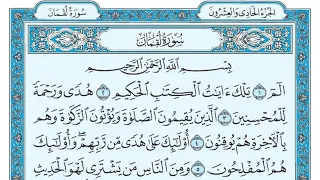 الجُزْءُ الحَادِى وَالعِشْرُونَ
سُورَةُ لُقْمَانَ
سُورَةُ لُقْمَانَ
بِسْمِ اللَّهِ الرَّحْمَٰنِ الرَّحِيمِ
الٓمٓ ١ تِلْكَ ءَايَٰتُ ٱلْكِتَٰبِ ٱلْحَكِيمِ ٢ هُدًى وَرَحْمَةً
لِّلْمُحْسِنِينَ ٣ ٱلَّذِينَ يُقِيمُونَ ٱلصَّلَوٰةَ وَيُؤْتُونَ ٱلزَّكَوٰةَ وَهُم
بِٱلْءَاخِرَةِ هُمْ يُوقِنُونَ ٤ أُو۟لَٰٓئِكَ عَلَىٰ هُدًى مِّن رَّبِّهِمْ ۖ وَأُو۟لَٰٓئِكَ
هُمُ ٱلْمُفْلِحُونَ ٥ وَمِنَ ٱلنَّاسِ مَن يَشْتَرِى لَهْوَ ٱلْحَدِيثِ